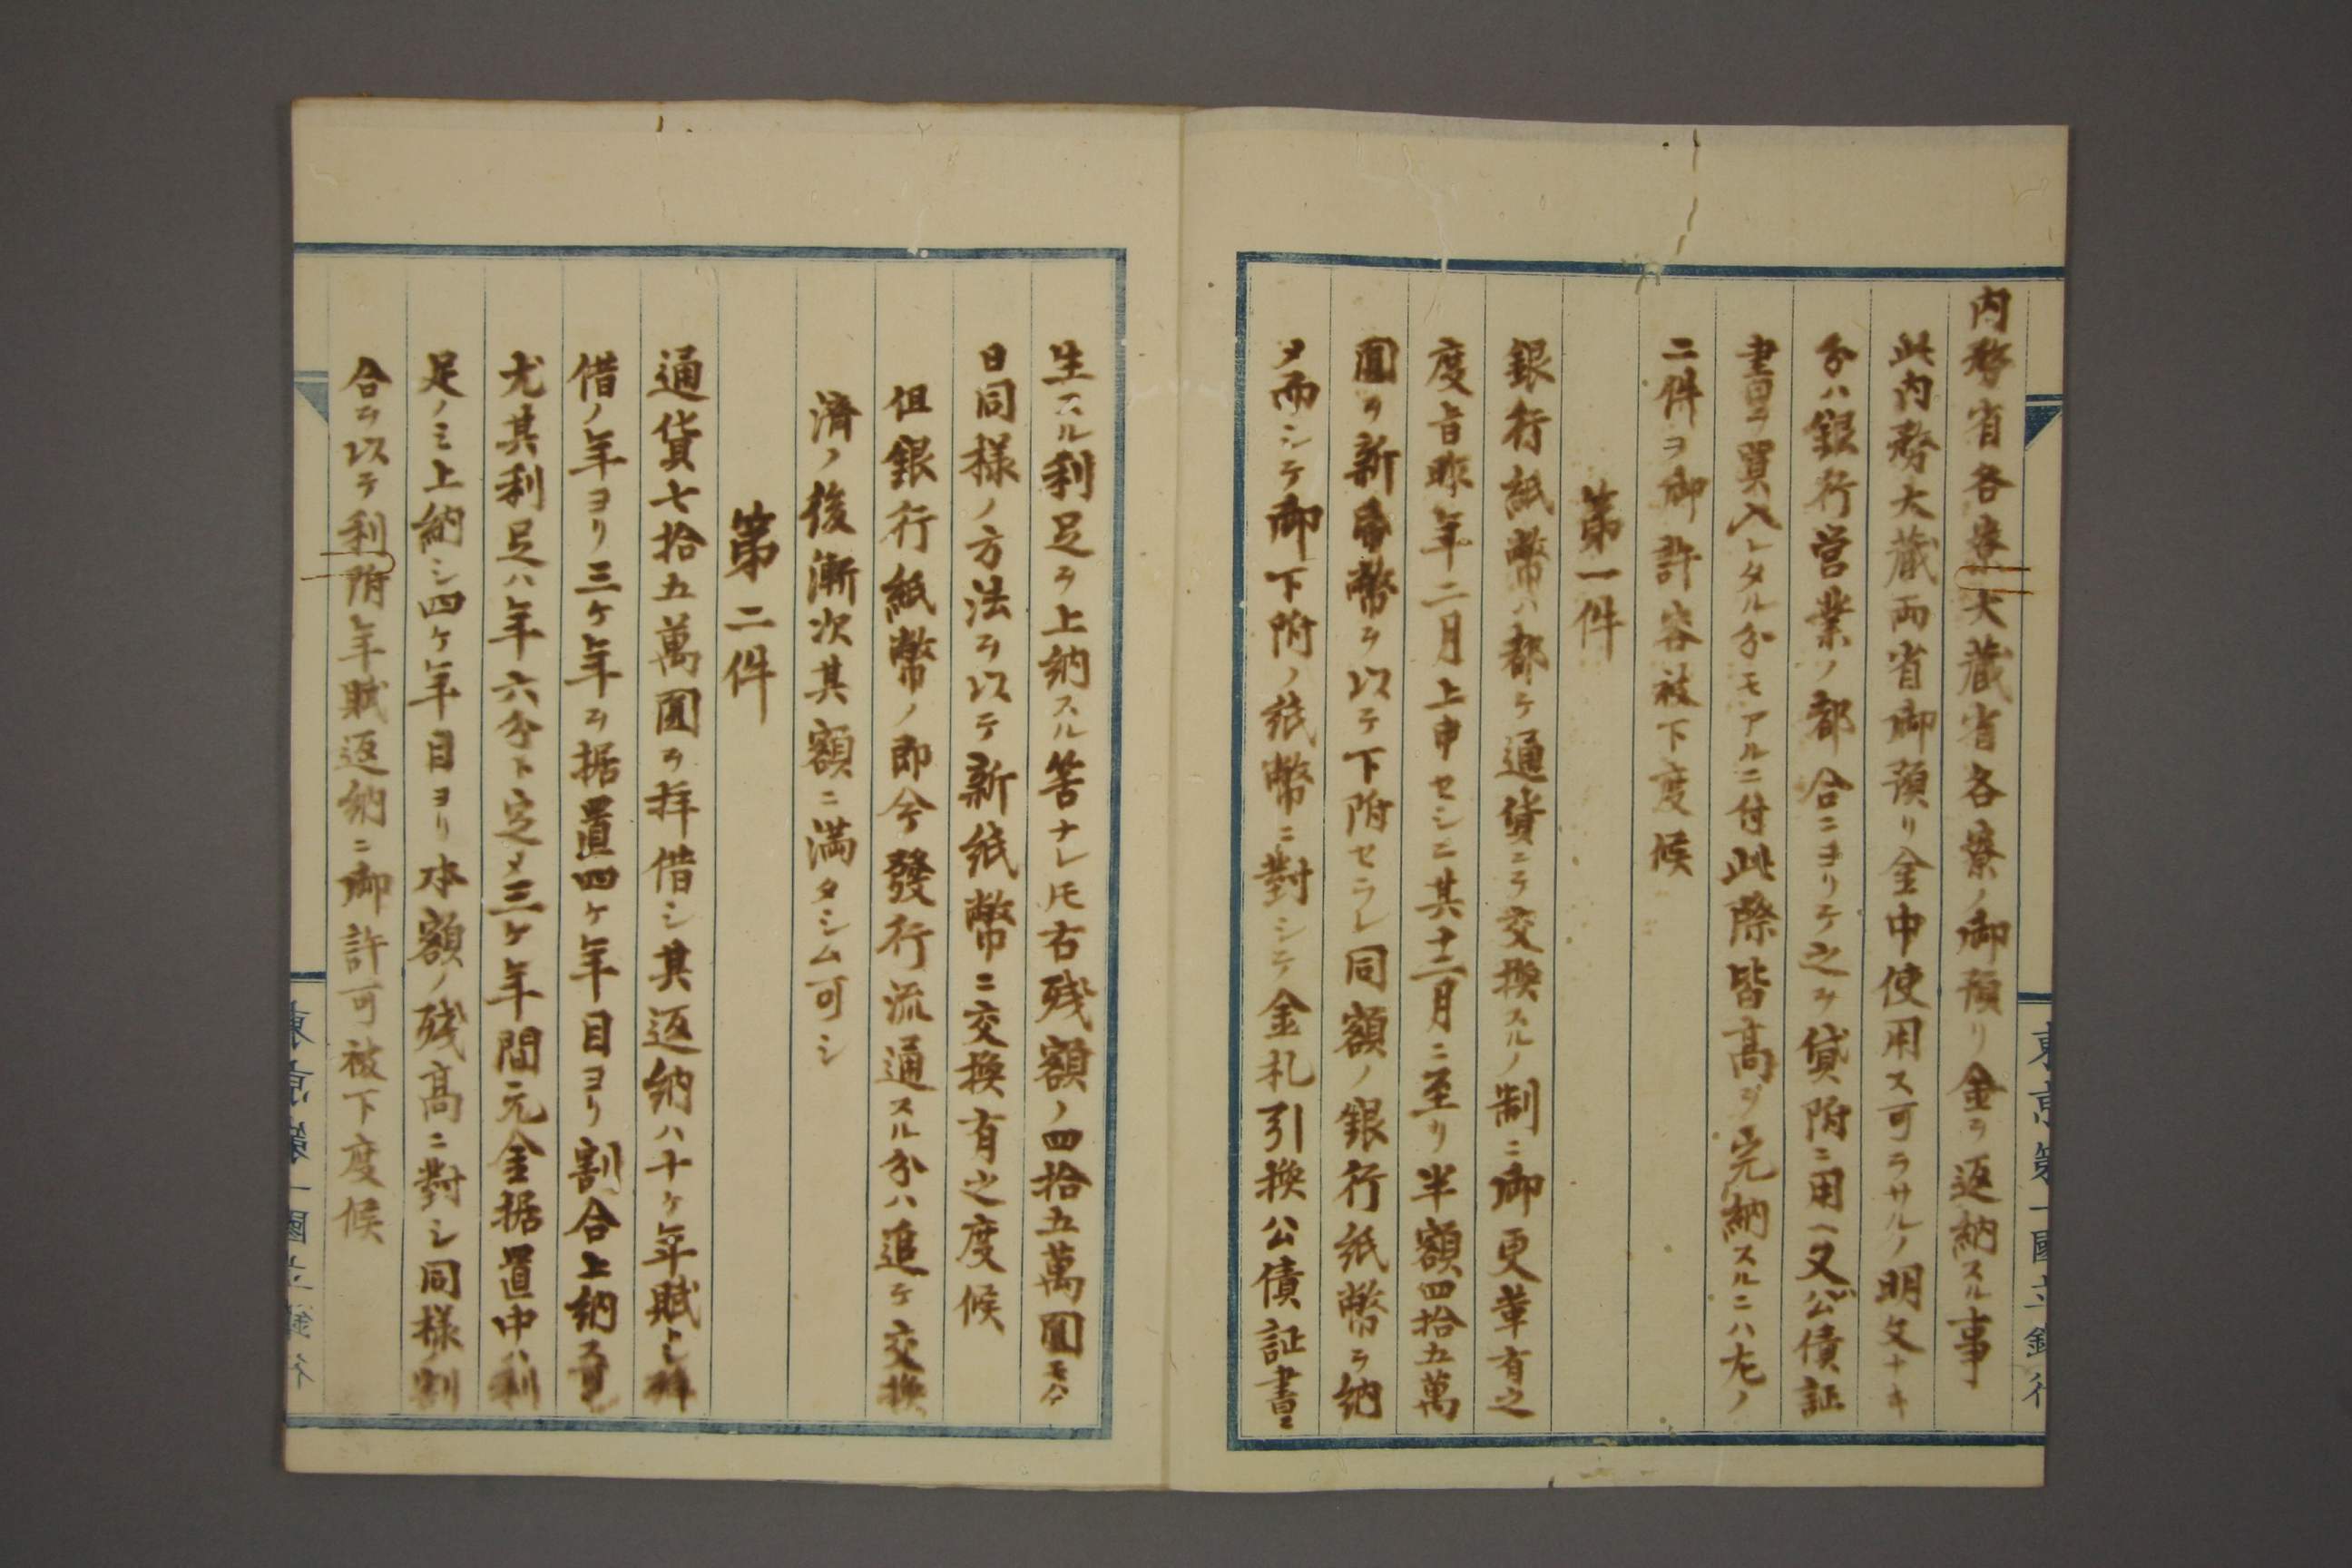 内務省各寮大藏省各寮ノ御預リ金ヲ返納スル事
此内務大藏両省御預リ金中使用ス可ラサルノ明文ナキ
分ハ銀行営業ノ都合ニヨリテ之ヲ貸附ニ用ヘ又公債証
書ヲ買入レタル分モアルニ付此際皆高ヲ完納スルニハ左ノ
二件ヲ御許容被下度候
第一件
銀行紙幣ハ都テ通貨ニテ交換スルノ制ニ御更革有之
度旨昨年二月上申セシニ其十二月ニ至リ半額四拾五萬
圓ヲ新紙幣ヲ以テ下附セラレ同額ノ銀行紙幣ヲ納
メ而シテ御下附ノ紙幣ニ對シテ金札引換公債証書ニ
東京第一國立銀行
生スル利足ヲ上納スル筈ナレ𪜈右残額ノ四拾五萬圓モ
日同様ノ方法ヲ以テ新紙幣ニ交換有之度候
但銀行紙幣ノ即今發行流通スル分ハ追テ交換
濟ノ後漸次其額ニ満タシム可シ
第二件
通貨七拾五萬圓ヲ拝借シ其返納ハ十ケ年賦トシ拝
借ノ年ヨリ三ケ年ヲ据置四ケ年目ヨリ割合上納ス可シ
尤其利足ハ年六分ト定メ三ケ年間元金据置中ハ利
足ノミ上納シ四ケ年目ヨリ本額ノ残高ニ對シ同様ノ割
合ヲ以テ利附年賦返納ニ御許可被下度候
東京第一國立銀行